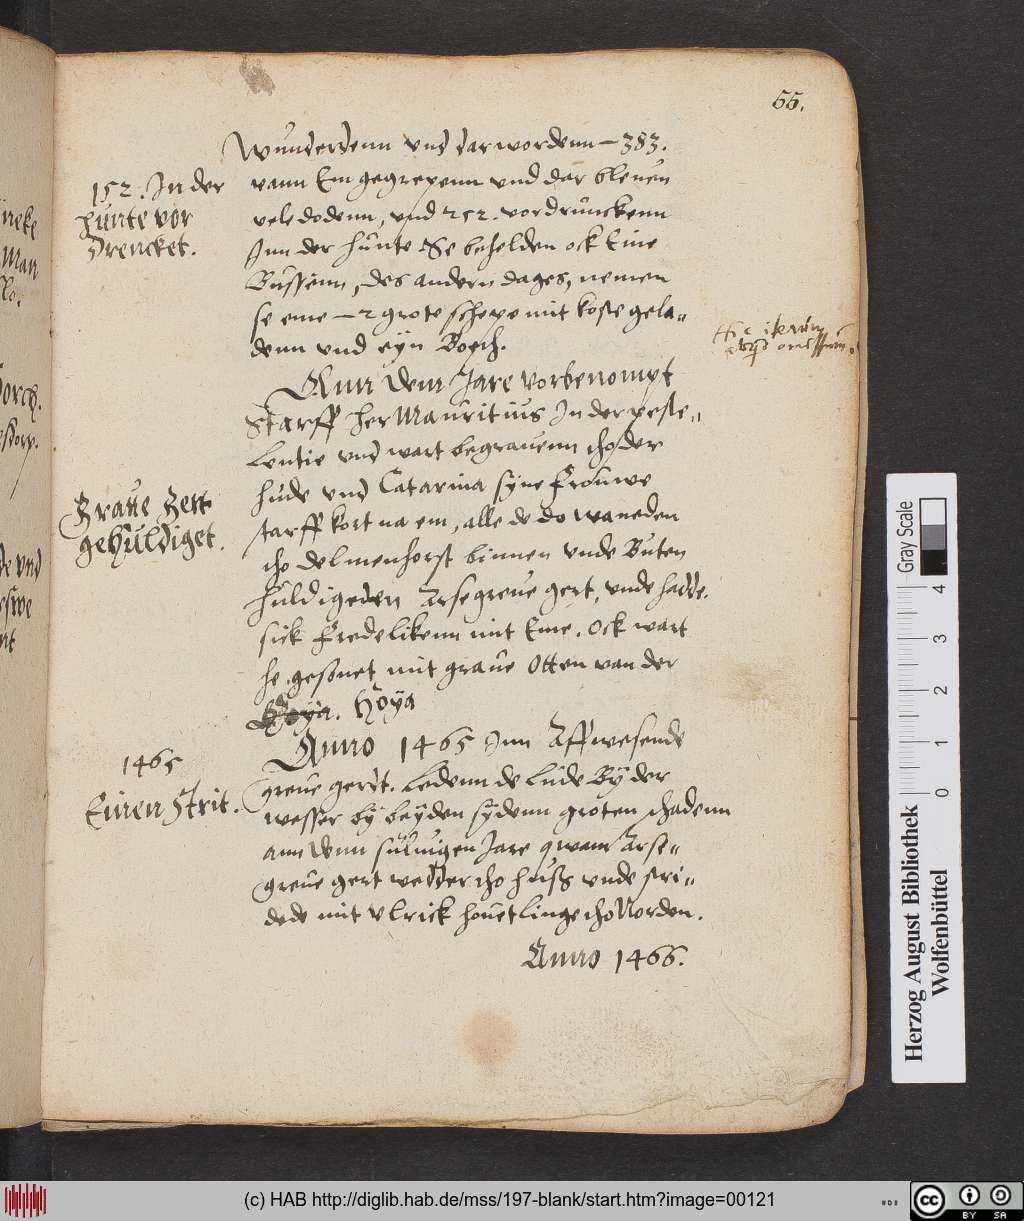 55.
Wunderdenn vnd dar wordenn – 383.
vann Em gegrepenn vnd dar bleuen
vele dodenn, vnd 252. vordrunckenn
Inn der hunte Se beholden ock Eine
Bussenn, des andern dages, nemen
se eme – 2 grote schepe mit koste gela„
denn vnd eyn Boych.
152. In der
hunte vor
Drencket.
Ann dem Jare vorbenompt
Starff her Mauritius In der peste„
lentie vnd wart begrauenn tho der
hude vnd Catarina syne Frouwe
starff kort na em, alle de do waneden
tho delmenhorst binnen vnde Buten
huldigeden Arsegreue gert, vnde hadde
sick Fredelikenn mit Eme. Ock wart
he gesonet mit graue Otten van der
Hoya. Hoÿa
Graue Gert
gehuldiget.
Anno 1465 Inn Affwesende
greue gerdt. Ledenn de lude Bÿ der
wesser bÿ beÿden sÿdenn groten schadenn
ann dem suluigen Jare qwam Arse„
greue gert wedder tho huß vnde stri„
dede mit Vlrick houetlinge tho Norden.
1465
Einen Strit.
Anno 1466.
Hic iterum
Man
Herzog August Bibliothek
Wolfenbüttel
0 1 2 3 4
Gray Scale
(c) HAB http://diglib.hab.de/mss/197-blank/start.htm?image=00121
cc BY SA